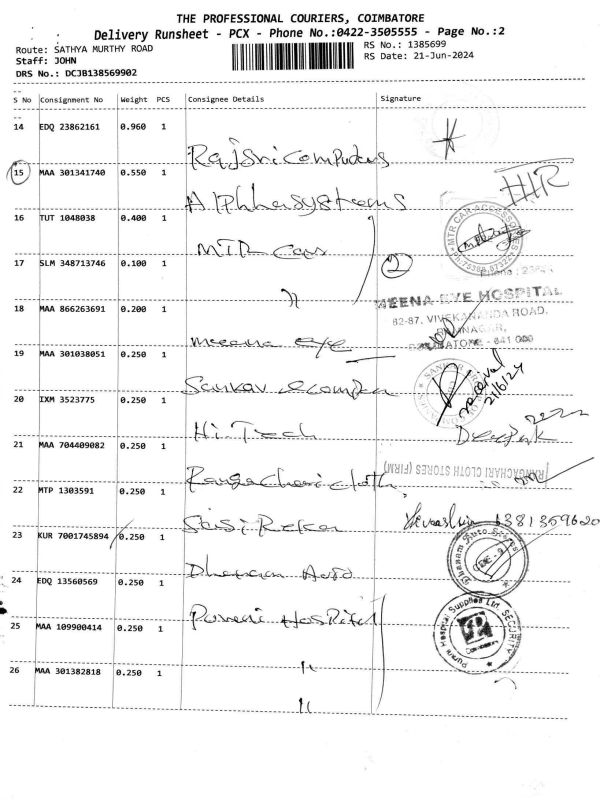 THE PROFESSIONAL COURIERS, COIMBATORE
Delivery Runsheet - PCX - Phone No.:0422-3505555 - Page No.:2
Route: SATHYA MURTHY ROAD
RS No.: 1385699
Staff: JOHN
RS Date: 21-Jun-2024
DRS No.: DCJB138569902
S No Consignment No Weight PCS Consignee Details Signature
14 EDQ 23862161 0.960 1
Rajsri Computers
15 MAA 301341740 0.550 1
Alphhasysteems
16 TUT 1048038 0.400 1
MTR Cars
MTR CAR ACCESSOR
17 SLM 348713746 0.100 1
2
"
18 MAA 866263691 0.200 1
MEENA EYE HOSPITAL
82-87, VIVEKANANDA ROAD,
641 000
Meena eye
19 MAA 301038051 0.250 1
received
21/6/24
20 IXM 3523775 0.250 1
Hi.Tech
Deepak
21 MAA 704409082 0.250 1
RANGACHARI CLOTH STORES (FIRM)
Rangachari cloth
22 MTP 1303591 0.250 1
23 KUR 7001745894 0.250 1
Dhanam Auto Stores
24 EDQ 13560569 0.250 1
Purani Hospital
Supplies Ltd. SECURITY
25 MAA 109900414 0.250 1
"
26 MAA 301382818 0.250 1
"